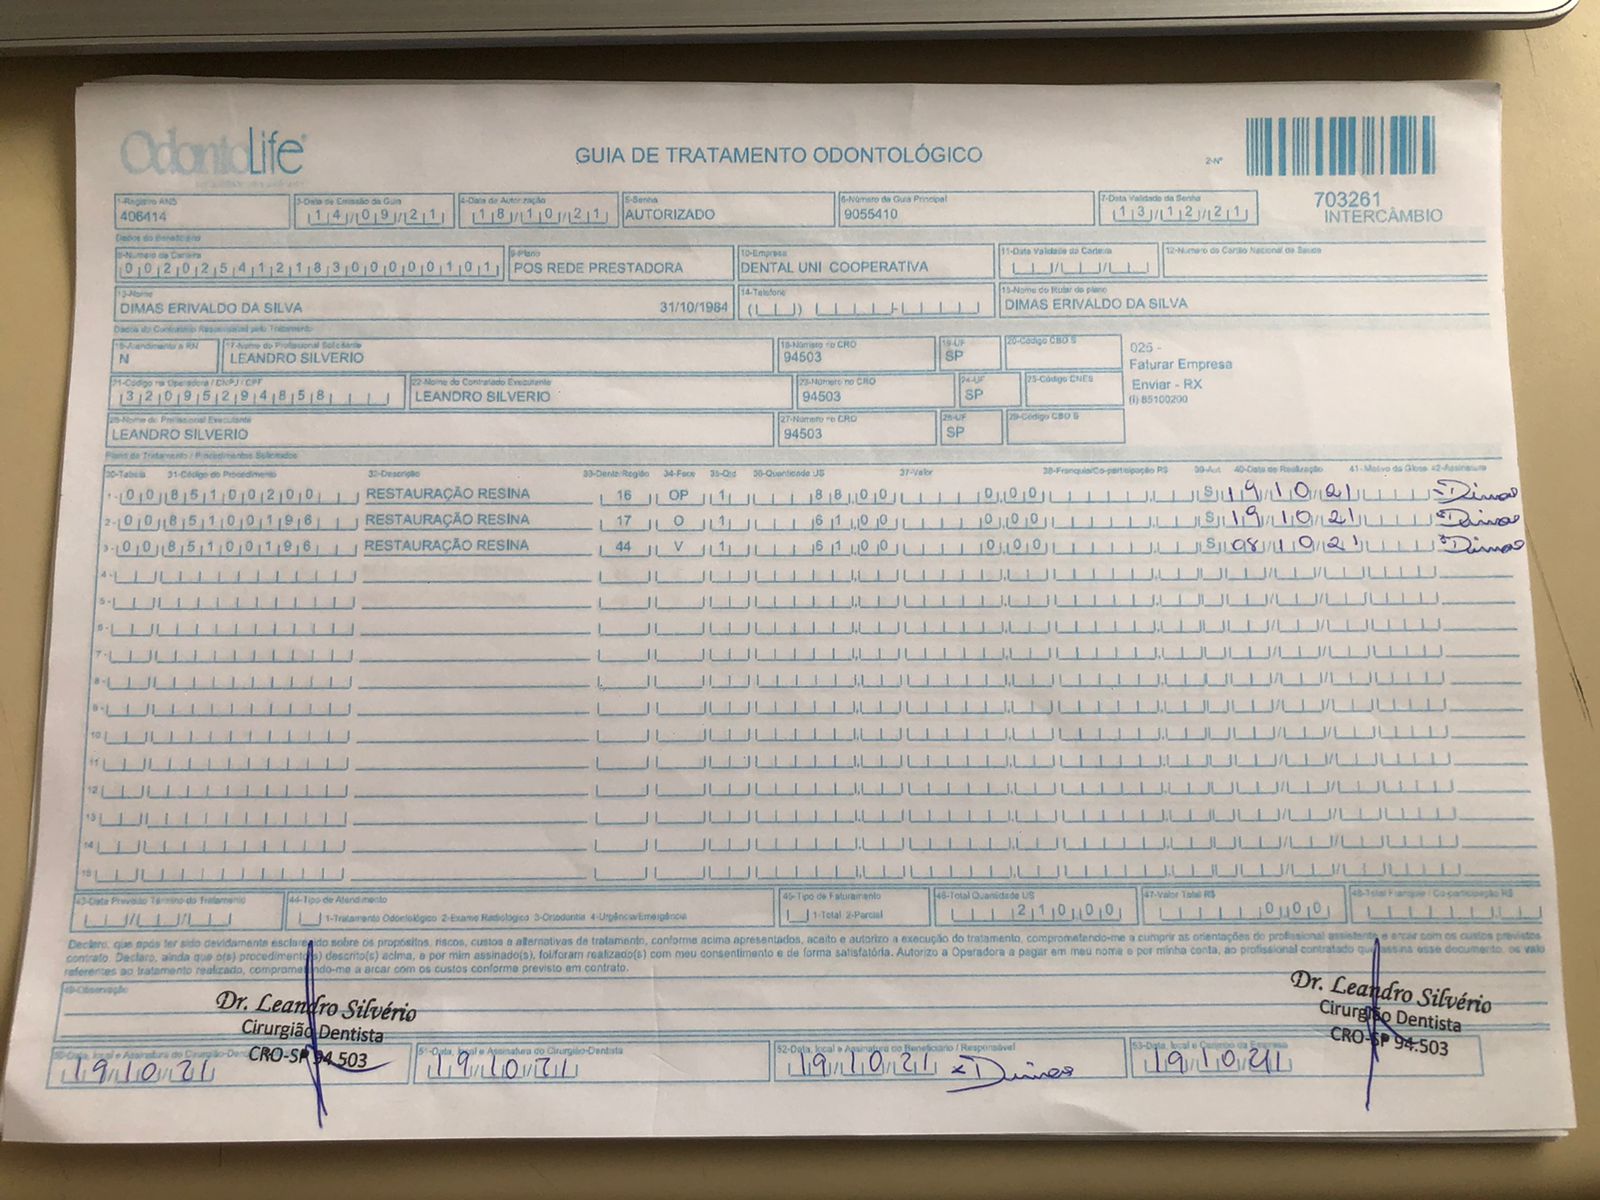 OdontoLife
GUIA DE TRATAMENTO ODONTOLÓGICO
2-Nº
703261
INTERCÂMBIO
1-Registro ANS
406414
3-Data de Emissão da Guia
14/09/21
4-Data de Autorização
18/10/21
5-Senha
AUTORIZADO
6-Número da Guia Principal
9055410
7-Data Validade da Senha
13/12/21
Dados do Beneficiário
8-Número da Carteira
00202541218300000101
9-Plano
POS REDE PRESTADORA
10-Empresa
DENTAL UNI COOPERATIVA
11-Data Validade da Carteira
12-Número do Cartão Nacional de Saúde
13-Nome
DIMAS ERIVALDO DA SILVA 31/10/1984
14-Telefone
15-Nome do titular do plano
DIMAS ERIVALDO DA SILVA
Dados do Contratado Responsável pelo Tratamento
16-Atendimento a RN
N
17-Nome do Profissional Solicitante
LEANDRO SILVERIO
18-Número no CRO
94503
19-UF
SP
20-Código CBO S
025 -
Faturar Empresa
Enviar - RX
(I) 85100200
21-Código na Operadora / CNPJ / CPF
32095294858
22-Nome do Contratado Executante
LEANDRO SILVERIO
23-Número no CRO
94503
24-UF
SP
25-Código CNES
26-Nome do Profissional Executante
LEANDRO SILVERIO
27-Número no CRO
94503
28-UF
SP
29-Código CBO S
Plano de Tratamento / Procedimentos Solicitados
30-Tabela 31-Código do Procedimento 32-Descrição 33-Dente/Região 34-Face 35-Qtd 36-Quantidade US 37-Valor 38-Franquia/Co-participação R$ 39-Aut 40-Data de Realização 41-Motivo da Glosa 42-Assinatura
1- 00 85100200 RESTAURAÇÃO RESINA 16 OP 1 88,00 0,00 S 19/10/21 Dimas
2- 00 85100196 RESTAURAÇÃO RESINA 17 O 1 61,00 0,00 S 19/10/21 Dimas
3- 00 85100196 RESTAURAÇÃO RESINA 44 V 1 61,00 0,00 S 08/10/21 Dimas
4-
5-
6-
7-
8-
9-
10
11
12
13
14
15
43-Data Previsão Término do Tratamento
44-Tipo de Atendimento
1-Tratamento Odontológico 2-Exame Radiológico 3-Ortodontia 4-Urgência/Emergência
45-Tipo de Faturamento
1-Total 2-Parcial
46-Total Quantidade US
210,00
47-Valor Total R$
0,00
48-Total Franquia / Co-participação R$
Declaro, que após ter sido devidamente esclarecido sobre os propósitos, riscos, custos e alternativas de tratamento, conforme acima apresentados, aceito e autorizo a execução do tratamento, comprometendo-me a cumprir as orientações do profissional assistente e arcar com os custos previstos
contrato. Declaro, ainda que o(s) procedimento(s) descrito(s) acima, e por mim assinado(s), foi/foram realizado(s) com meu consentimento e de forma satisfatória. Autorizo a Operadora a pagar em meu nome e por minha conta, ao profissional contratado que assina esse documento, os valo
referentes ao tratamento realizado, comprometendo-me a arcar com os custos conforme previsto em contrato.
49-Observação
Dr. Leandro Silvério
Cirurgião Dentista
CRO-SP 94.503
Dr. Leandro Silvério
Cirurgião Dentista
CRO-SP 94.503
50-Data, local e Assinatura do Cirurgião-Dentista
19/10/21
51-Data, local e Assinatura do Cirurgião-Dentista
19/10/21
52-Data, local e Assinatura do Beneficiário / Responsável
19/10/21 Dimas
53-Data, local e Carimbo da Empresa
19/10/21